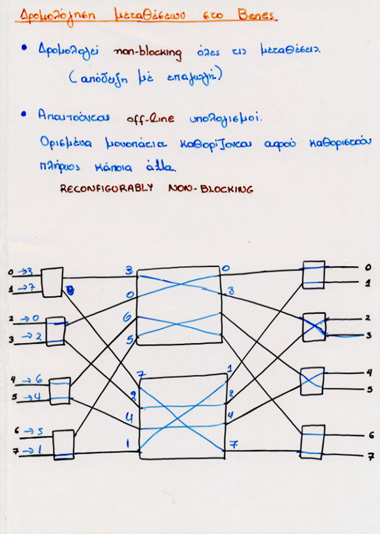 Δρομολόγηση μεταθέσεων στο Benes.
• Δρομολογεί non-blocking όλες τις μεταθέσεις.
(απόδειξη με επαγωγή)
• Απαιτούνται off-line υπολογισμοί.
Ορισμένα μονοπάτια καθορίζονται αφού καθοριστούν
πλήρως κάποια άλλα.
RECONFIGURABLY NON-BLOCKING
0 →3 3 0 0
1 →7 0 3 1
2 →0 6 2
3 →2 5 3
4 →6 7 1 4
5 →4 2 2 5
6 →5 4 4 6
7 →1 1 7 7